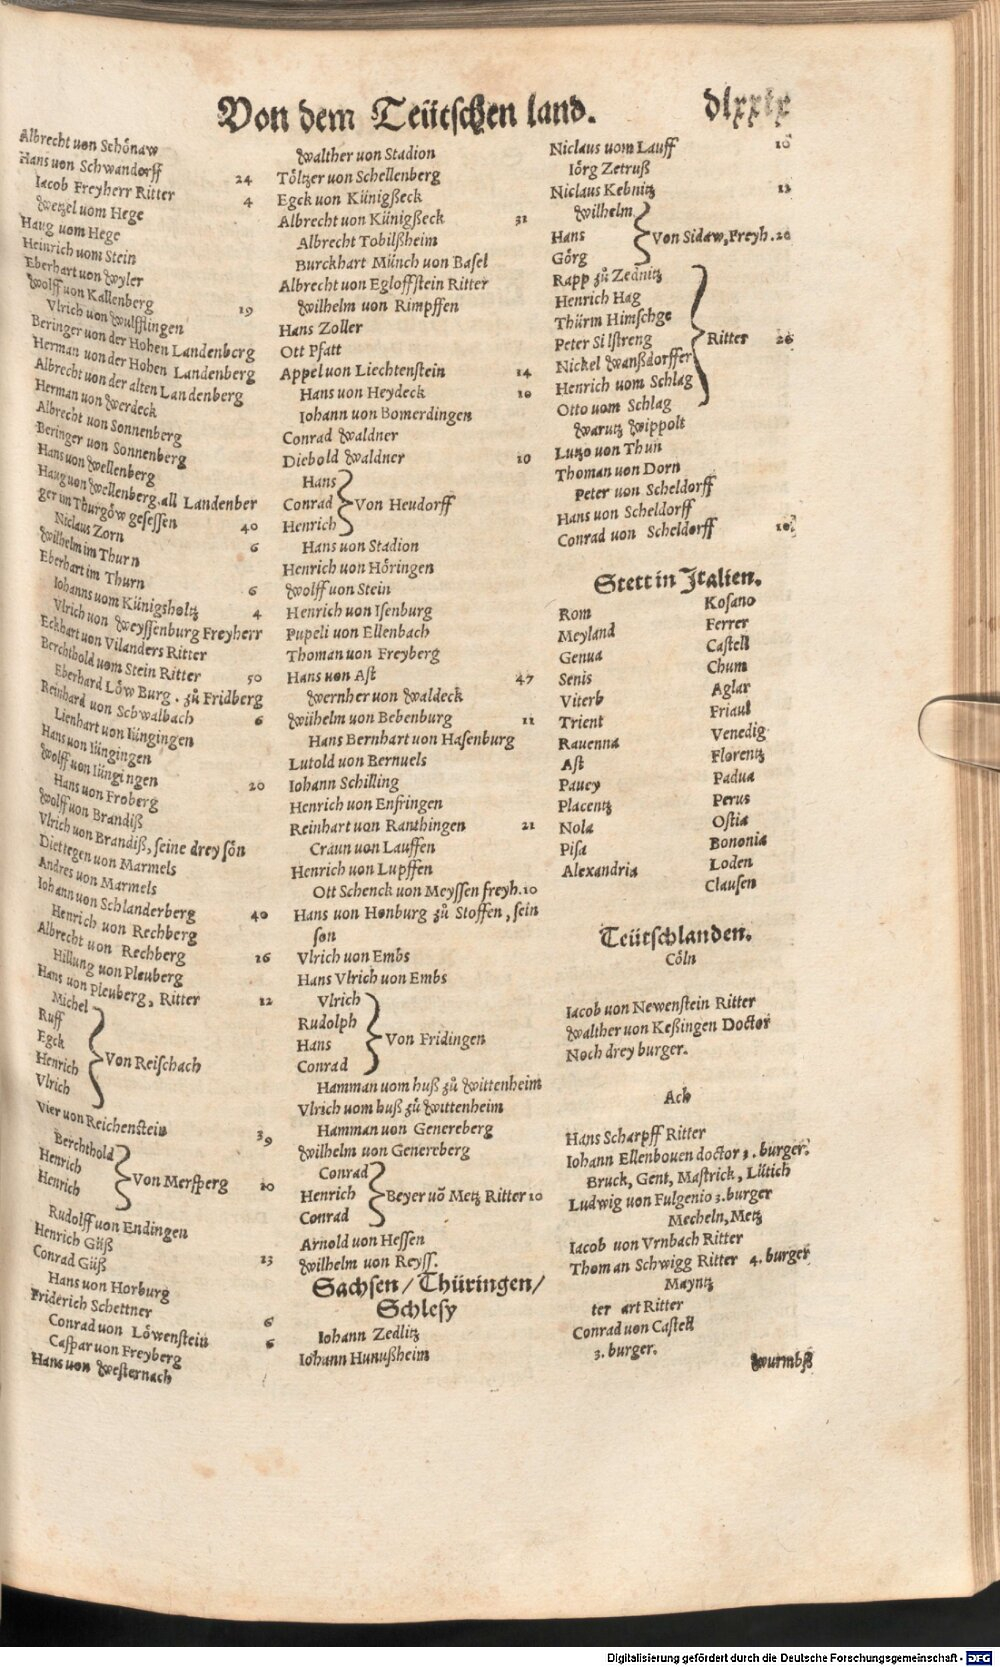 Von dem Teütschen land. dlxxix
Albrecht von Schönaw
Hans von Schwandorff 24
Iacob Freyherr Ritter 4
Wetzel vom Hege
Haug vom Hege
Heinrich vom Stein
Eberhart von Wyler
Wolff von Kallenberg 19
Vlrich von Wulfflingen
Beringer von der Hohen Landenberg
Herman von der Hohen Landenberg
Albrecht von der alten Landenberg
Herman von Werdeck
Albrecht von Sonnenberg
Beringer von Sonnenberg
Hans von Wellenberg
Haug von Wellenberg. all Landenber
ger im Thurgöw gesessen 40
Niclaus Zorn 6
Wilhelm im Thurn
Eberhart im Thurn 6
Iohanns vom Künigsholtz 4
Vlrich von Weyssenburg Freyherr
Eckhart von Vilanders Ritter
Berchthold vom Stein Ritter 50
Eberhard Löw Burg. zů Fridberg
Reinhard von Schwalbach 6
Lienhart von Iüngingen
Hans von Iüngingen
Wolff von Iüngingen 20
Hans von Froberg
Wolff von Brandiß
Vlrich von Brandiß, seine drey sön
Diettegen von Marmels
Andres von Marmels
Iohann von Schlanderberg 40
Henrich von Rechberg
Albrecht von Rechberg 26
Hillung von Pleuberg
Hans von Pleuberg, Ritter 12
Michel
Ruff
Egck
Henrich
Vlrich
Von Reischach
Vier von Reichenstein 39
Berchthold
Henrich
Henrich
Von Mersperg 20
Rudolff von Endingen
Henrich Güß
Conrad Güß 23
Hans von Horburg
Friderich Schettner
Conrad von Löwenstein 6
Caspar von Freyberg 6
Hans von Westernach
Walther von Stadion
Töltzer von Schellenberg
Egck von Künigßeck
Albrecht von Künigßeck 31
Albrecht Tobilßheim
Burckhart Münch von Basel
Albrecht von Egloffstein Ritter
Wilhelm von Rimpffen
Hans Zoller
Ott Pfatt
Appel von Liechtenstein 14
Hans von Heydeck 10
Iohann von Bomerdingen
Conrad Waldner
Diebold Waldner 10
Hans
Conrad
Henrich
Von Heudorff
Hans von Stadion
Henrich von Höringen
Wolff von Stein
Henrich von Isenburg
Pupeli von Ellenbach
Thoman von Freyberg
Hans von Ast 47
Wernher von Waldeck
Wilhelm von Bebenburg 11
Hans Bernhart von Hasenburg
Lutold von Bernuels
Iohann Schilling
Henrich von Enfringen
Reinhart von Ranthingen 21
Craun von Lauffen
Henrich von Lupffen
Ott Schenck von Meyssen freyh. 10
Hans von Honburg zů Stoffen, sein
son
Vlrich von Embs
Hans Vlrich von Embs
Vlrich
Rudolph
Hans
Conrad
Von Fridingen
Hamman vom huß zů Wittenheim
Vlrich vom huß zů Wittenheim
Hamman von Genereberg
Wilhelm von Genereberg
Conrad
Henrich
Conrad
Beyer võ Metz Ritter 10
Arnold von Hessen
Wilhelm von Reyss.
Sachsen/Thüringen/
Schlesy
Iohann Zedlitz
Iohann Hunußheim
Niclaus vom Lauff 10
Iörg Zetruß
Niclaus Kebnitz 12
Wilhelm
Hans
Görg
Von Sidaw, Freyh. 20
Rapp zů Zednitz
Henrich Hag
Thürm Himschge
Peter Silstreng
Nickel Wanßdorffer
Henrich vom Schlag
Otto vom Schlag
Ritter 26
Warutz Wippolt
Lutzo von Thun
Thoman von Dorn
Peter von Scheldorff
Hans von Scheldorff
Conrad von Scheldorff
Stett in Italien.
Rom Kosano
Meyland Ferrer
Genua Castell
Senis Chum
Viterb Aglar
Trient Friaul
Rauenna Venedig
Ast Florentz
Pauey Padua
Placentz Perus
Nola Ostia
Pisa Bononia
Alexandria Loden
Clausen
Teütschlanden.
Cöln
Iacob von Newenstein Ritter
Walther von Keßingen Doctor
Noch drey burger.
Ach
Hans Scharpff Ritter
Iohann Ellenbouen doctor 3. burger.
Bruck, Gent, Mastrick, Lütich
Ludwig von Fulgenio 3. burger
Mecheln, Metz
Iacob von Vrnbach Ritter
Thoman Schwigg Ritter 4. burger
Mayntz
ter art Ritter
Conrad von Castell
3. burger.
Wurmbß
Digitalisierung gefördert durch die Deutsche Forschungsgemeinschaft - DFG